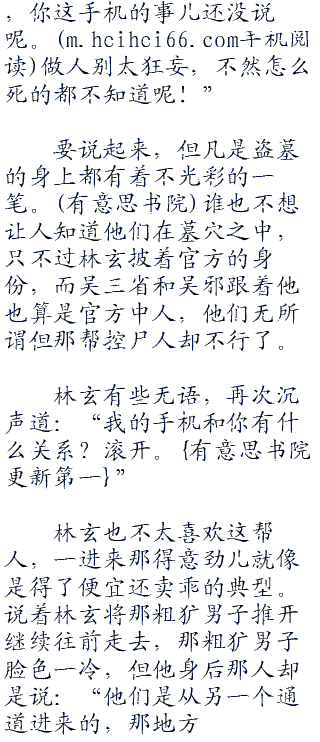 ，你这手机的事儿还没说
呢。(m.hcihci66.com手机阅
读)做人别太狂妄，不然怎么
死的都不知道呢！”
要说起来，但凡是盗墓
的身上都有着不光彩的一
笔。(有意思书院)谁也不想
让人知道他们在墓穴之中，
只不过林玄披着官方的身
份，而吴三省和吴邪跟着他
也算是官方中人，他们无所
谓但那帮控尸人却不行了。
林玄有些无语，再次沉
声道：“我的手机和你有什
么关系？滚开。{有意思书院
更新第一}”
林玄也不太喜欢这帮
人，一进来那得意劲儿就像
是得了便宜还卖乖的典型。
说着林玄将那粗犷男子推开
继续往前走去，那粗犷男子
脸色一冷，但他身后那人却
是说：“他们是从另一个通
道进来的，那地方